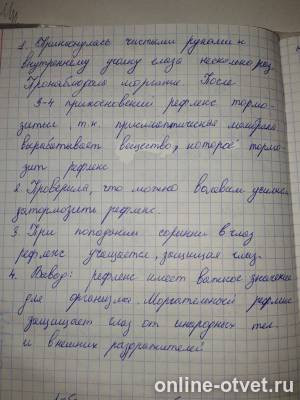 1. Прикоснулась чистыми руками к
внутреннему углу глаза несколько раз
Пронаблюдала моргание. После
3-4 прикосновений рефлекс тормо-
зится, т.к. мембрана
вырабатывает вещество, которое тормо-
зит рефлекс
2. Проверила, что можно волевым усилием
затормозить рефлекс.
3. При попадании соринки в глаз
рефлекс учащается, защищая глаз.
4. Вывод: рефлекс имеет важное значение
для организма. Мигательный рефлекс
защищает глаз от инородных тел
и внешних раздражителей
online-otvet.ru